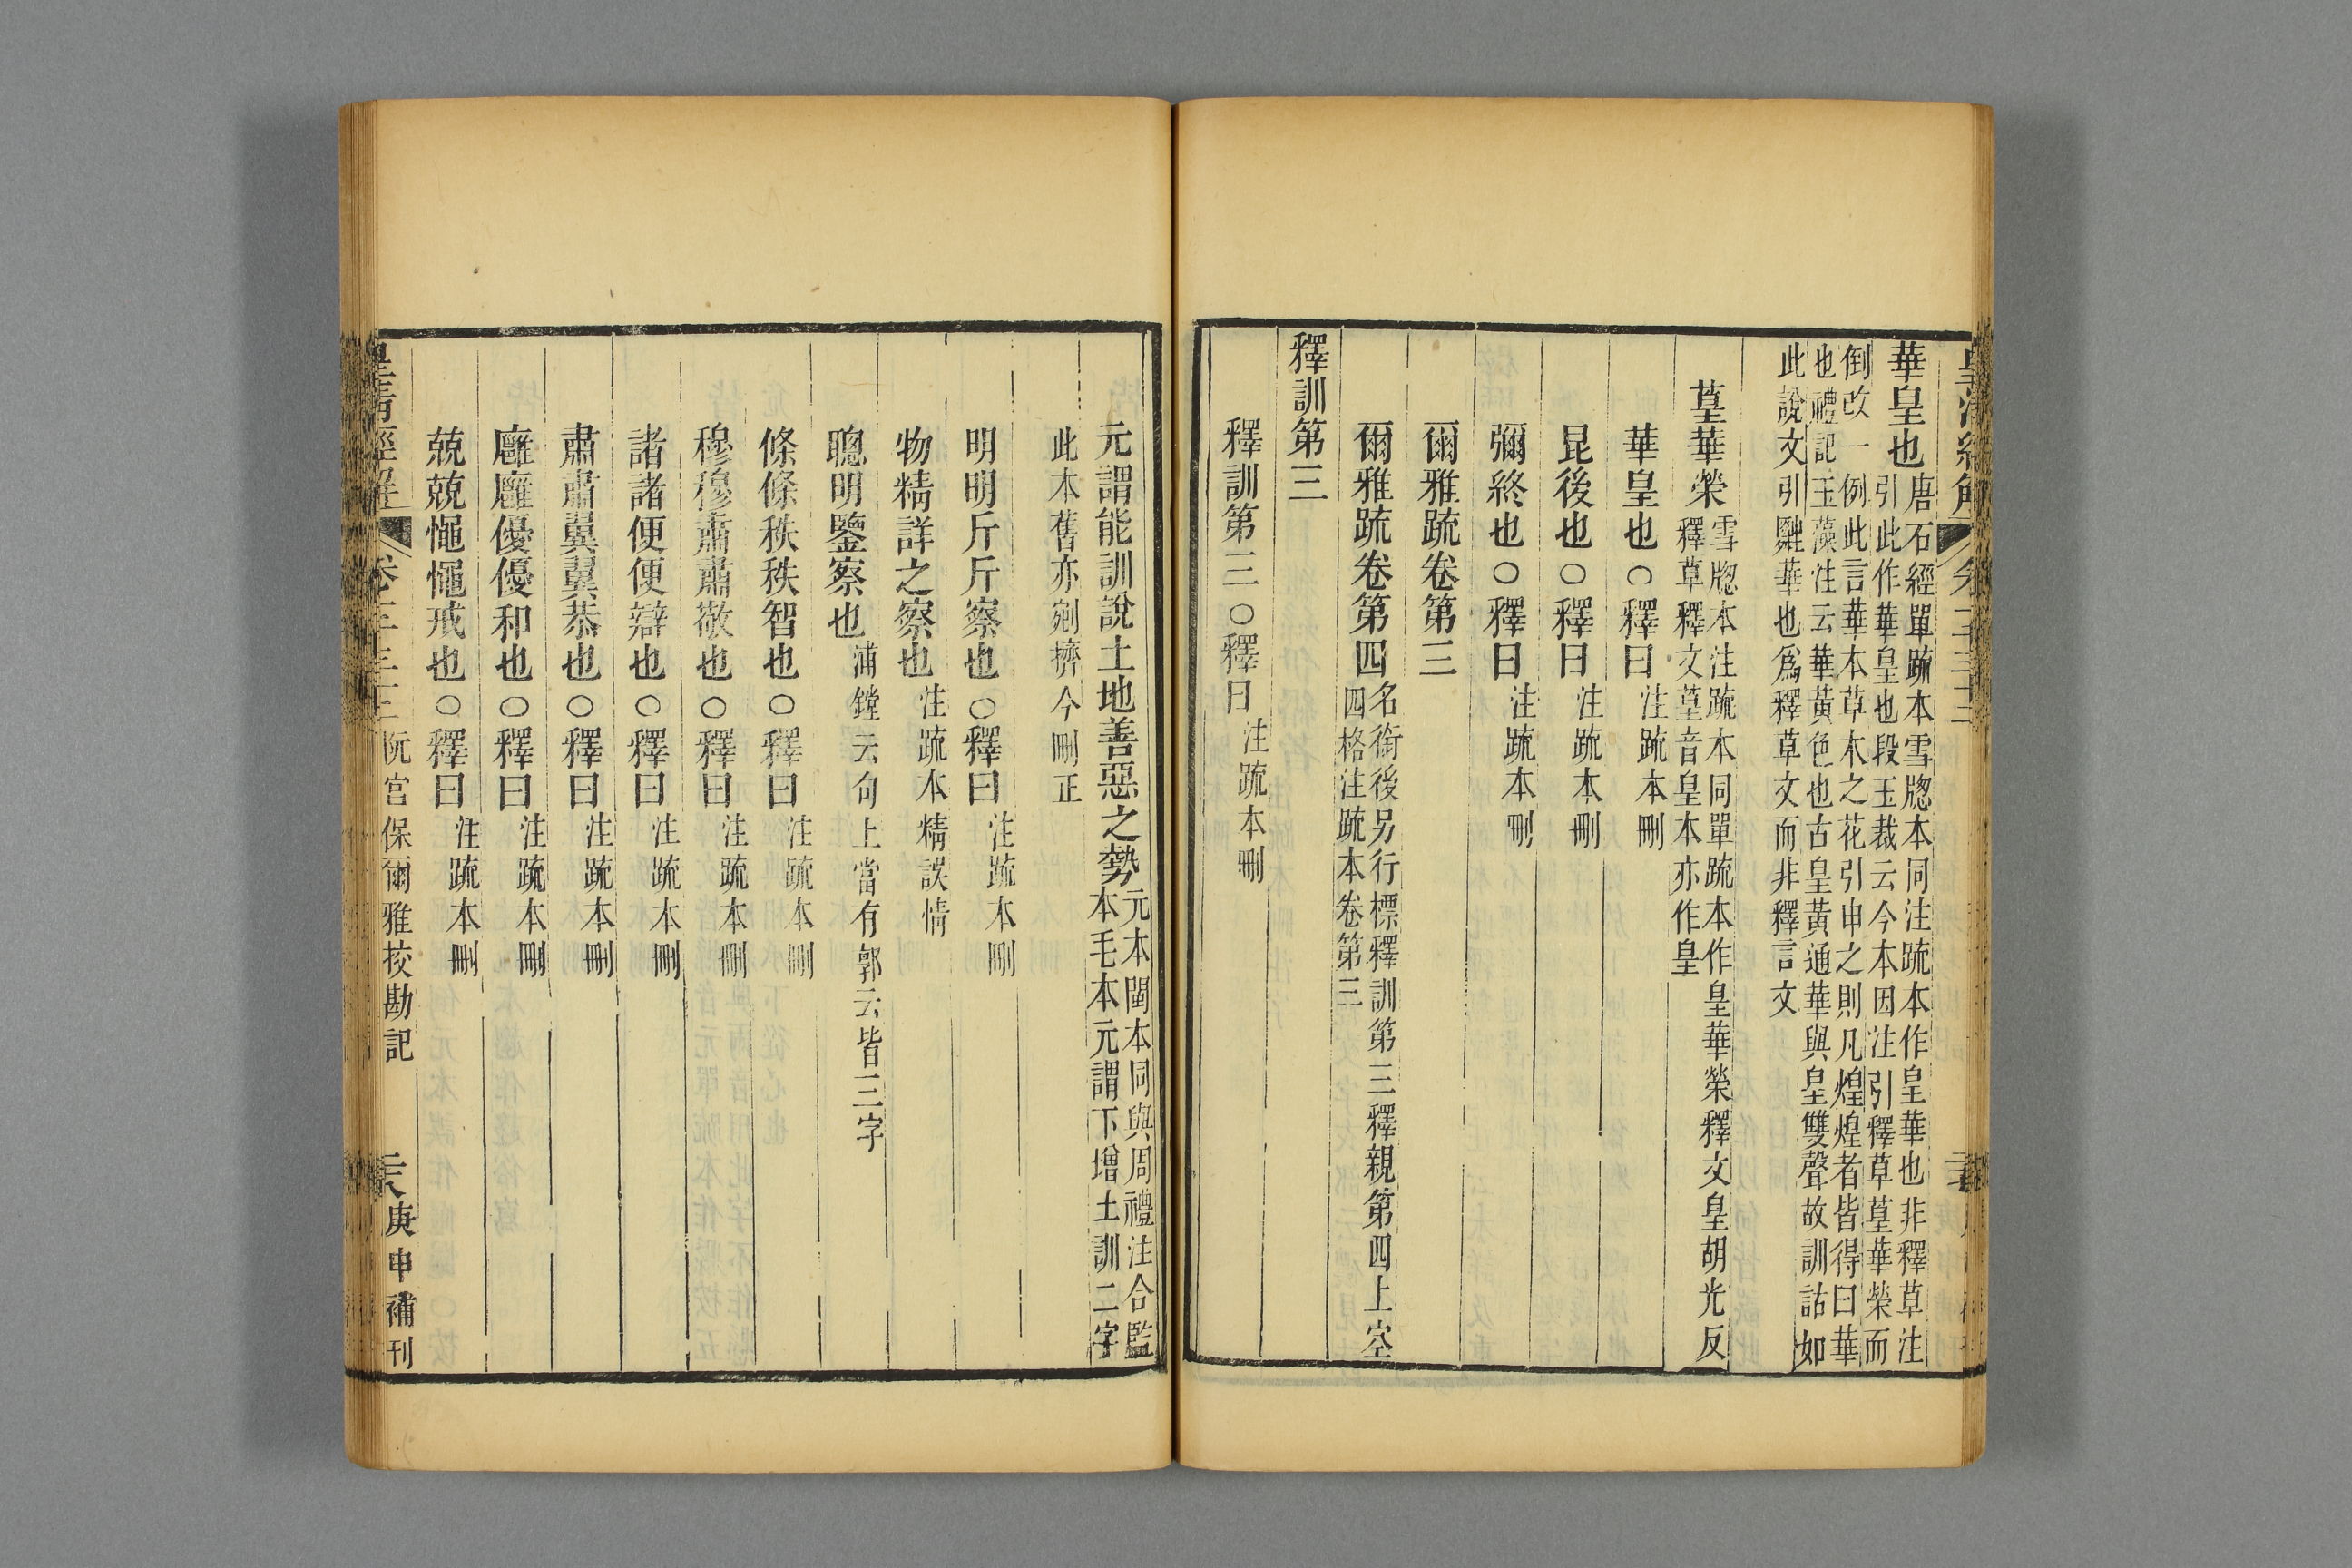 華皇也唐石經單䟽本雪牎本同注䟽本作皇華也非釋草注
引此作華皇也段玉裁云今本因注引釋草葟華榮而
倒改一例此言華本草木之花引申之則凡煌煌者皆得曰華
也禮記玉藻注云華黃色也古皇黃通華與皇雙聲故訓詁如
此說文引䑞華也爲釋草文而非釋言文
葟華榮雪牎本注䟽本同單䟽本作皇華榮釋文皇胡光反
釋草釋文葟音皇本亦作皇
華皇也○釋曰注䟽本刪
昆後也○釋曰注䟽本刪
彌終也○釋曰注䟽本刪
爾雅䟽卷第三
爾雅䟽卷第四名銜後另行標釋訓第三釋親第四上空
四格注䟽本卷第三
釋訓第三
釋訓第三○釋曰注䟽本刪
元謂能訓說土地善惡之勢元本閩本同與周禮注合監
本毛本元謂下增土訓二字
此本舊亦剜擠今刪正
明明斤斤察也○釋曰注䟽本刪
物精詳之察也注䟽本精誤情
聰明鑒察也浦鏜云句上當有郭云皆三字
條條秩秩智也○釋曰注䟽本刪
穆穆肅肅敬也○釋曰注䟽本刪
諸諸便便辯也○釋曰注䟽本刪
肅肅翼翼恭也○釋曰注䟽本刪
廱廱優優和也○釋曰注䟽本刪
兢兢憴憴戒也○釋曰注䟽本刪
皇清經解 卷 阮宮保爾雅挍勘記 庚申補刊